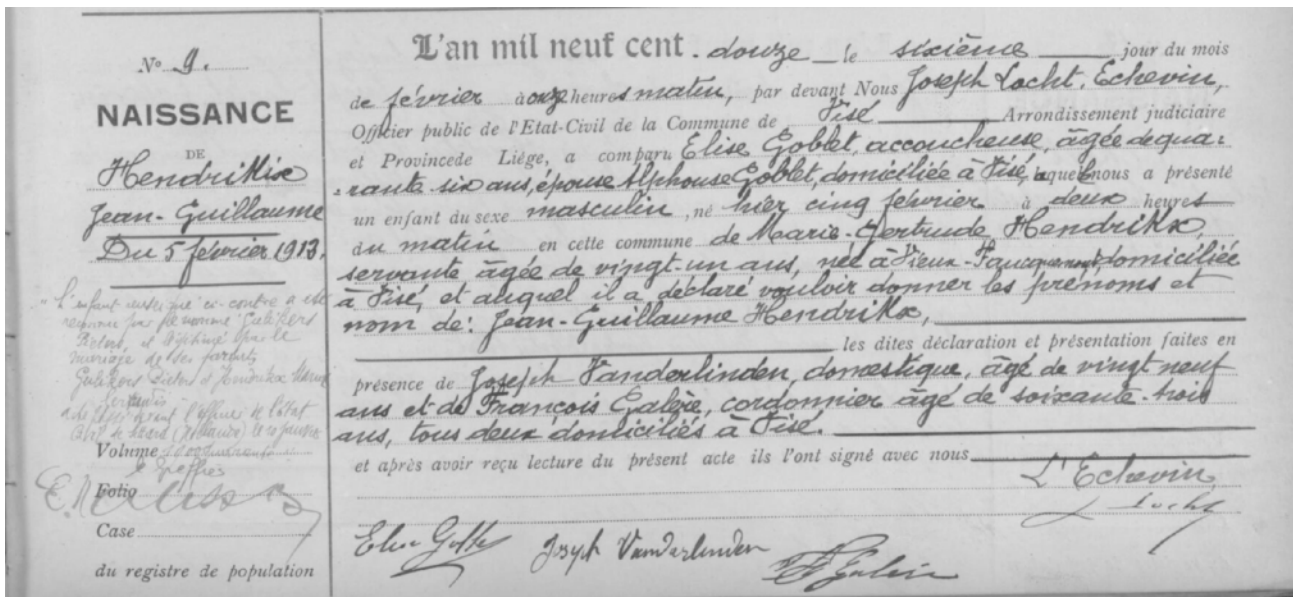 N° 9.
NAISSANCE
DE
Hendrikx
Jean-Guillaume
Du 5 février 1913.
"L'enfant ci-contre a été
reconnu par le nommé Gulikers
et légitimé par le
mariage de ses parents
Gulikers et Hendrikx
devant l'officier de l'état
civil de
Volume
Le Greffier
Folio
Case
du registre de population
L'an mil neuf cent douze le sixième jour du mois
de février à onze heures matin, par devant Nous Joseph Locht, Echevin,
Officier public de l'Etat-Civil de la Commune de Visé Arrondissement judiciaire
et Province de Liége, a comparu Elise Goblet, accoucheuse, âgée de qua-
-rante-six ans, épouse Alphonse Goblet, domiciliée à Visé, laquelle nous a présenté
un enfant du sexe masculin, né hier cinq février à deux heures
du matin en cette commune de Marie-Gertrude Hendrikx,
servante âgée de vingt-un ans, née à Vieux-Fauquemont, domiciliée
à Visé, et auquel il a déclaré vouloir donner les prénoms et
nom de: Jean-Guillaume Hendrikx,
les dites déclaration et présentation faites en
présence de Joseph Vanderlinden, domestique, âgé de vingt neuf
ans et de François Galère, cordonnier âgé de soixante-trois
ans, tous deux domiciliés à Visé.
et après avoir reçu lecture du présent acte ils l'ont signé avec nous
L'Echevin,
Locht
Joseph Vanderlinden